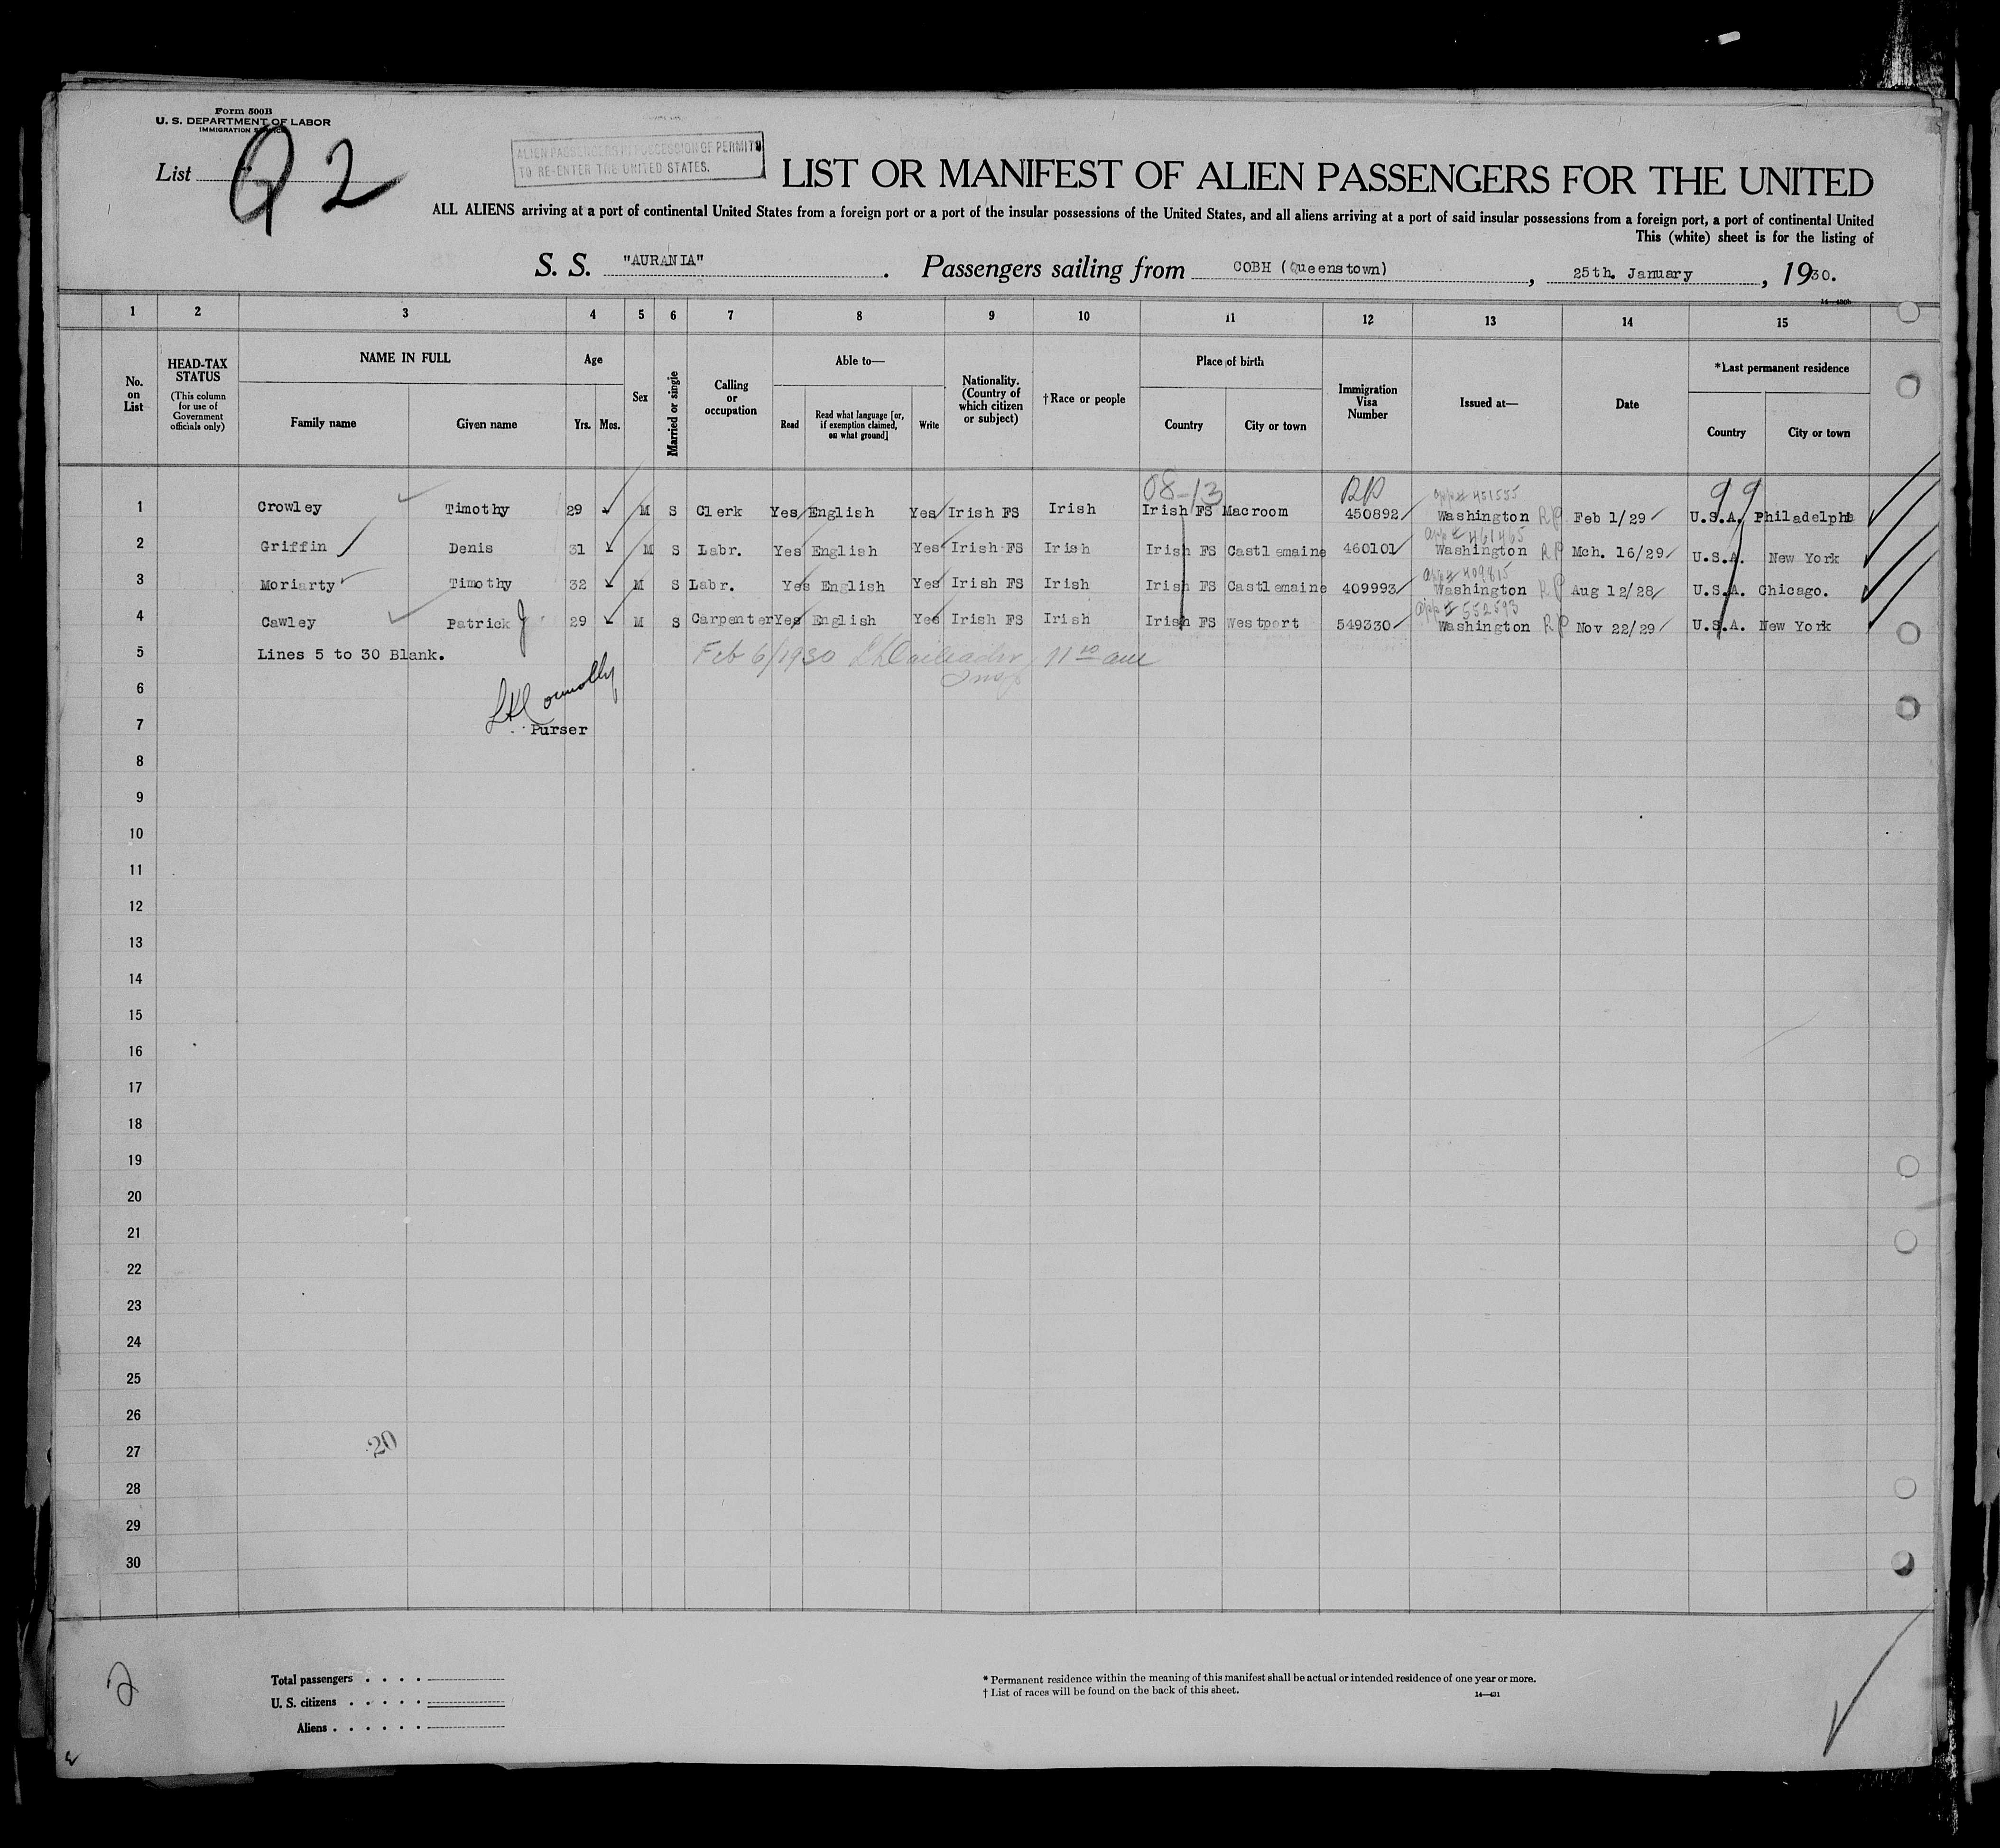 Form 500B
U. S. DEPARTMENT OF LABOR
IMMIGRATION SERVICE
List Q2
ALIEN PASSENGERS IN POSSESSION OF PERMITS
TO RE-ENTER THE UNITED STATES.
LIST OR MANIFEST OF ALIEN PASSENGERS FOR THE UNITED
ALL ALIENS arriving at a port of continental United States from a foreign port or a port of the insular possessions of the United States, and all aliens arriving at a port of said insular possessions from a foreign port, a port of continental United
This (white) sheet is for the listing of
S. S. "AURANIA" . Passengers sailing from COBH (Queenstown) , 25th. January , 1930.
1 2 3 4 5 6 7 8 9 10 11 12 13 14 15
No. on List
HEAD-TAX STATUS (This column for use of Government officials only)
NAME IN FULL
Family name Given name
Age
Yrs. Mos.
Sex
Married or single
Calling or occupation
Able to—
Read Read what language [or, if exemption claimed, on what ground] Write
Nationality. (Country of which citizen or subject)
†Race or people
Place of birth
Country City or town
Immigration Visa Number
Issued at—
Date
*Last permanent residence
Country City or town
08-13 RP app # 451555 99
1 Crowley Timothy 29 M S Clerk Yes English Yes Irish FS Irish Irish FS Macroom 450892 Washington RP Feb 1/29 U.S.A. Philadelphi
app # 461465
2 Griffin Denis 31 M S Labr. Yes English Yes Irish FS Irish Irish FS Castlemaine 460101 Washington RP Mch. 16/29 U.S.A. New York
app # 409815
3 Moriarty Timothy 32 M S Labr. Yes English Yes Irish FS Irish Irish FS Castlemaine 409993 Washington RP Aug 12/28 U.S.A. Chicago.
app # 552593
4 Cawley Patrick J 29 M S Carpenter Yes English Yes Irish FS Irish Irish FS Westport 549330 Washington RP Nov 22/29 U.S.A. New York
5 Lines 5 to 30 Blank. Feb 6/1930 11 10 am
Insp
6
Connolly
7 Purser
8
9
10
11
12
13
14
15
16
17
18
19
20
21
22
23
24
25
26
27 20
28
29
30
2
Total passengers
U. S. citizens
Aliens
* Permanent residence within the meaning of this manifest shall be actual or intended residence of one year or more.
† List of races will be found on the back of this sheet.
14—431